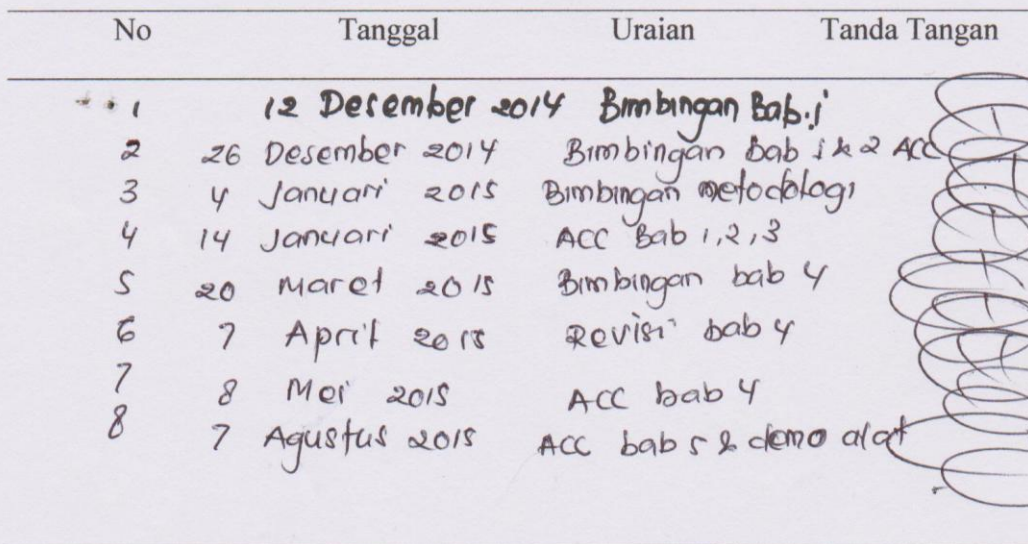 No Tanggal Uraian Tanda Tangan
1 12 Desember 2014 Bimbingan Bab.i
2 26 Desember 2014 Bimbingan Bab i & 2 ACC
3 4 Januari 2015 Bimbingan metodologi
4 14 Januari 2015 ACC Bab 1,2,3
5 20 Maret 2015 Bimbingan bab 4
6 7 April 2015 Revisi bab 4
7 8 Mei 2015 ACC bab 4
8 7 Agustus 2015 ACC bab 5 & demo alat